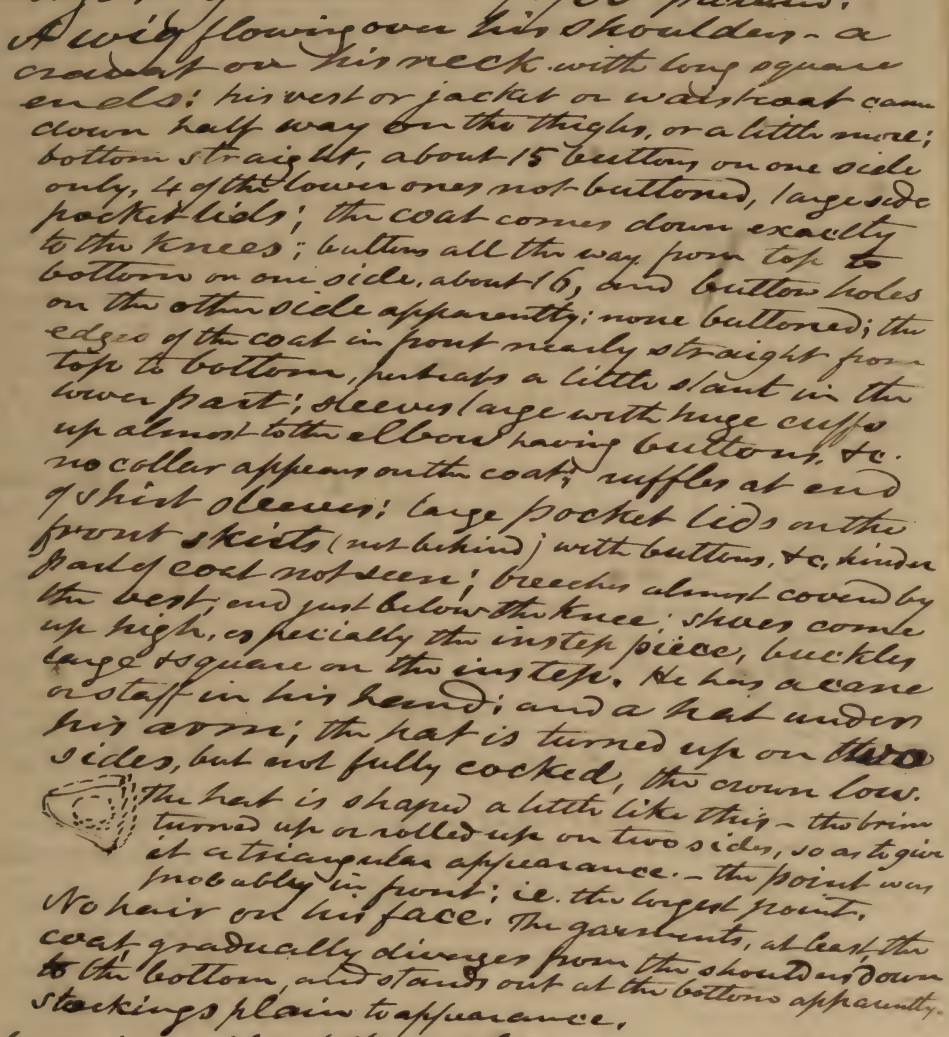 A wig flowing over his shoulders - a
cravat on his neck with long square
ends: his vest or jacket or waistcoat came
down half way on the thighs, or a little more;
bottom straight, about 15 buttons on one side
only, 4 of the lower ones not buttoned, large side
pocket lids; the coat comes down exactly
to the knees; buttons all the way from top to
bottom on one side, about 16, and button holes
on the other side apparently; none buttoned; the
edges of the coat in front nearly straight from
top to bottom, perhaps a little slant in the
lower part; sleeves large with huge cuffs
up almost to the elbow having buttons, &c.
no collar appears on the coat; ruffles at end
of shirt sleeves; large pocket lids on the
front skirts (not behind) with buttons, &c, hinder
part of coat not seen; breeches almost covered by
the vest, end just below the knee; shoes come
up high, especially the instep piece, buckles
large & square on the instep. He has a cane
or staff in his hand; and a hat under
his arm; the hat is turned up on two
sides, but not fully cocked, the crown low.
The hat is shaped a little like this - the brim
turned up or rolled up on two sides, so as to give
it a triangular appearance. - the point was
probably in front; i.e. the largest point.
No hair on his face. The garments, at least, the
coat, gradually diverges from the shoulders down
to the bottom, and stands out at the bottom apparently.
stockings plain to appearance.